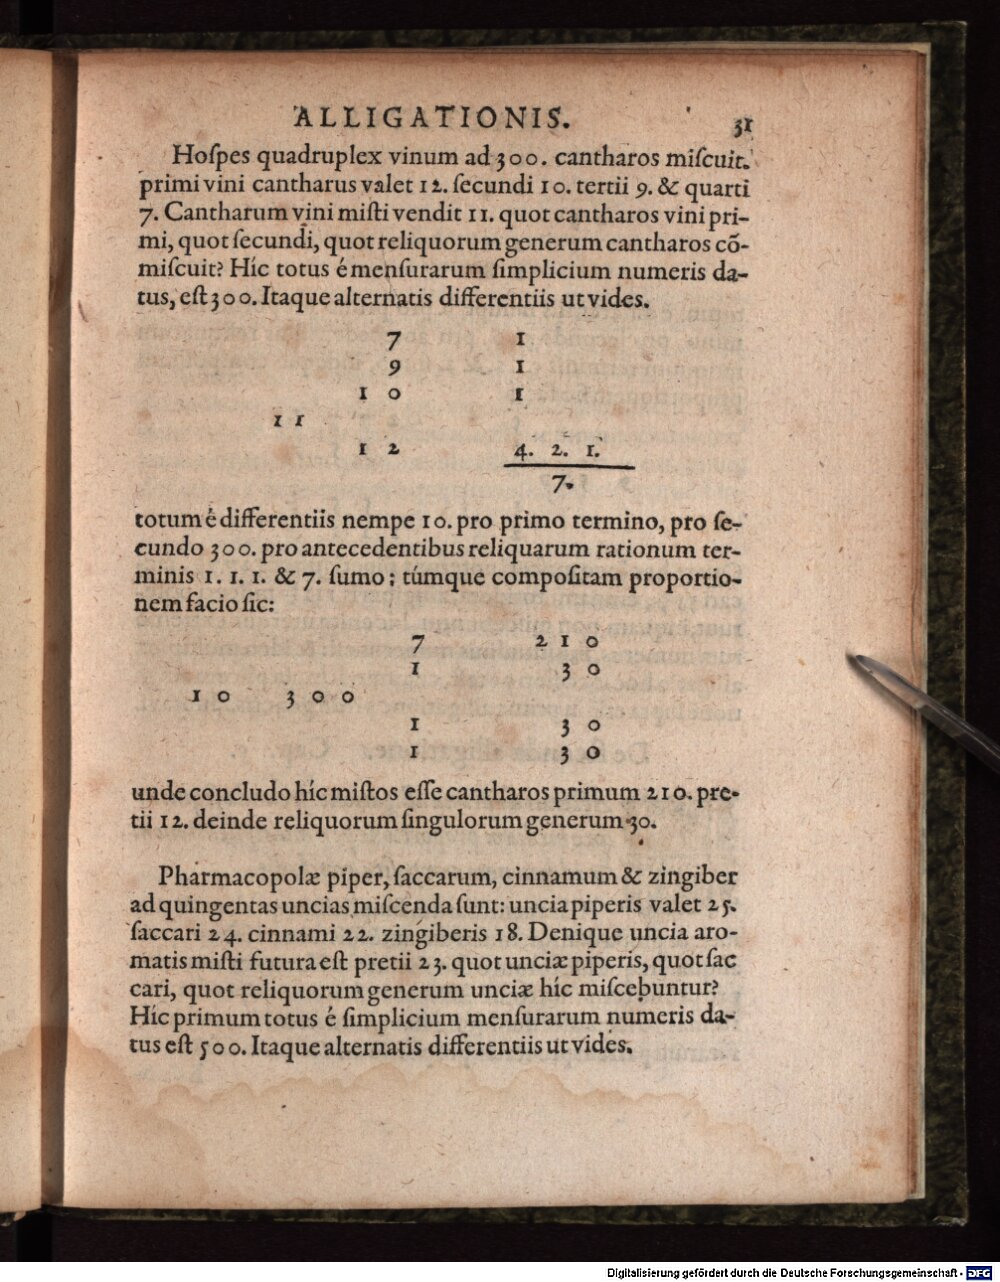 ALLIGATIONIS. 31
Hoſpes quadruplex vinum ad 300. cantharos miſcuit.
primi vini cantharus valet 12. ſecundi 10. tertii 9. & quarti
7. Cantharum vini miſti vendit 11. quot cantharos vini pri-
mi, quot ſecundi, quot reliquorum generum cantharos cõ-
miſcuit? Híc totus é menſurarum ſimplicium numeris da-
tus, eſt 300. Itaque alternatis differentiis ut vides.
7 1
9 1
10 1
11
12 4. 2. 1.
7.
totum é differentiis nempe 10. pro primo termino, pro ſe-
cundo 300. pro antecedentibus reliquarum rationum ter-
minis 1. 1. 1. & 7. ſumo; túmque compoſitam proportio-
nem facio ſic:
7 210
1 30
10 300
1 30
1 30
unde concludo híc miſtos eſſe cantharos primum 210. pre-
tii 12. deinde reliquorum ſingulorum generum 30.
Pharmacopolæ piper, ſaccarum, cinnamum & zingiber
ad quingentas uncias miſcenda ſunt: uncia piperis valet 25.
ſaccari 24. cinnami 22. zingiberis 18. Denique uncia aro-
matis miſti futura eſt pretii 23. quot unciæ piperis, quot ſac
cari, quot reliquorum generum unciæ híc miſcebuntur?
Híc primum totus é ſimplicium menſurarum numeris da-
tus eſt 500. Itaque alternatis differentiis ut vides.
Digitalisierung gefördert durch die Deutsche Forschungsgemeinschaft - DFG